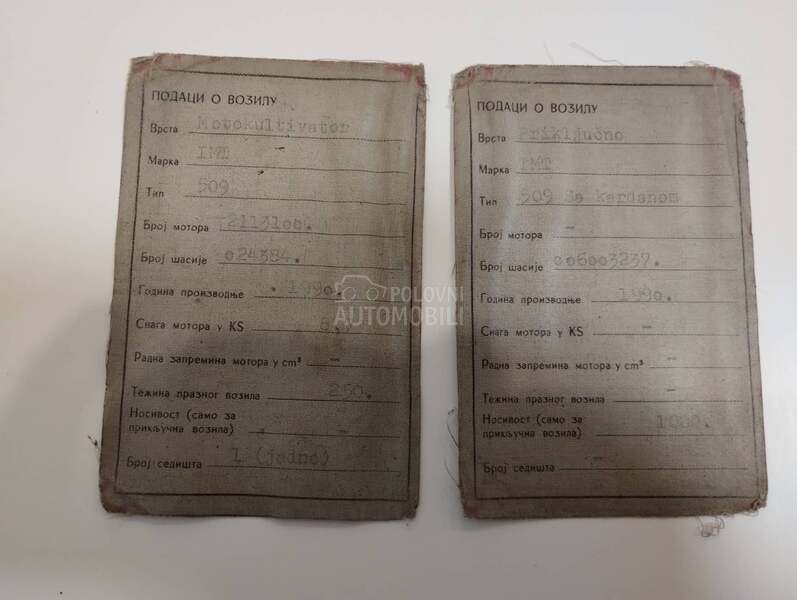 ПОДАЦИ О ВОЗИЛУ
Врста Motokultivator
Марка IMT
Тип 509
Број мотора
Број шасије 024384.
Година производње 1990.
Снага мотора у KS
Радна запремина мотора у cm³ –
Тежина празног возила 250.
Носивост (само за
прикључна возила) –
Број седишта 1 (jedno)
ПОДАЦИ О ВОЗИЛУ
Врста Priključno
Марка IMT
Тип 509 sa kardanom
Број мотора –
Број шасије 006003237.
Година производње 1990.
Снага мотора у KS –
Радна запремина мотора у cm³ –
Тежина празног возила –
Носивост (само за
прикључна возила)
Број седишта –
POLOVNI
AUTOMOBILI